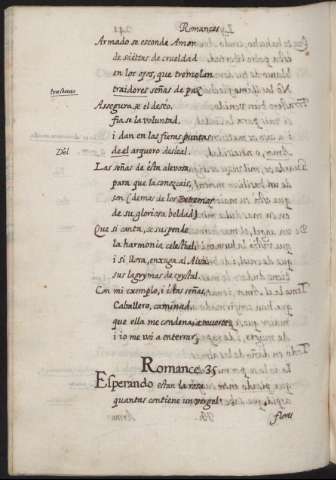 Romances
Armado se esconde Amor
de saetas de crueldad
en los ojos, que tremolan
traidores señas de paz
Asegurase el deseo,
fiase la voluntad,
i dan en las fieras puntas
de el arquero desleal.
Del
Las señas de esta alevosa
para que la conozcais,
son (demas de los
de su gloriosa beldad)
Que si canta, se suspende
la harmonia celestial,
i si llora, enxuga al Alva
sus lagrymas de crystal.
Con mi exemplo, i estas señas,
Caballero, caminad,
que ella me condena a muerte,
i io me voi a enterrar,
Romance. 35
Esperando estan la rosa
quantas contiene un vergel
flores